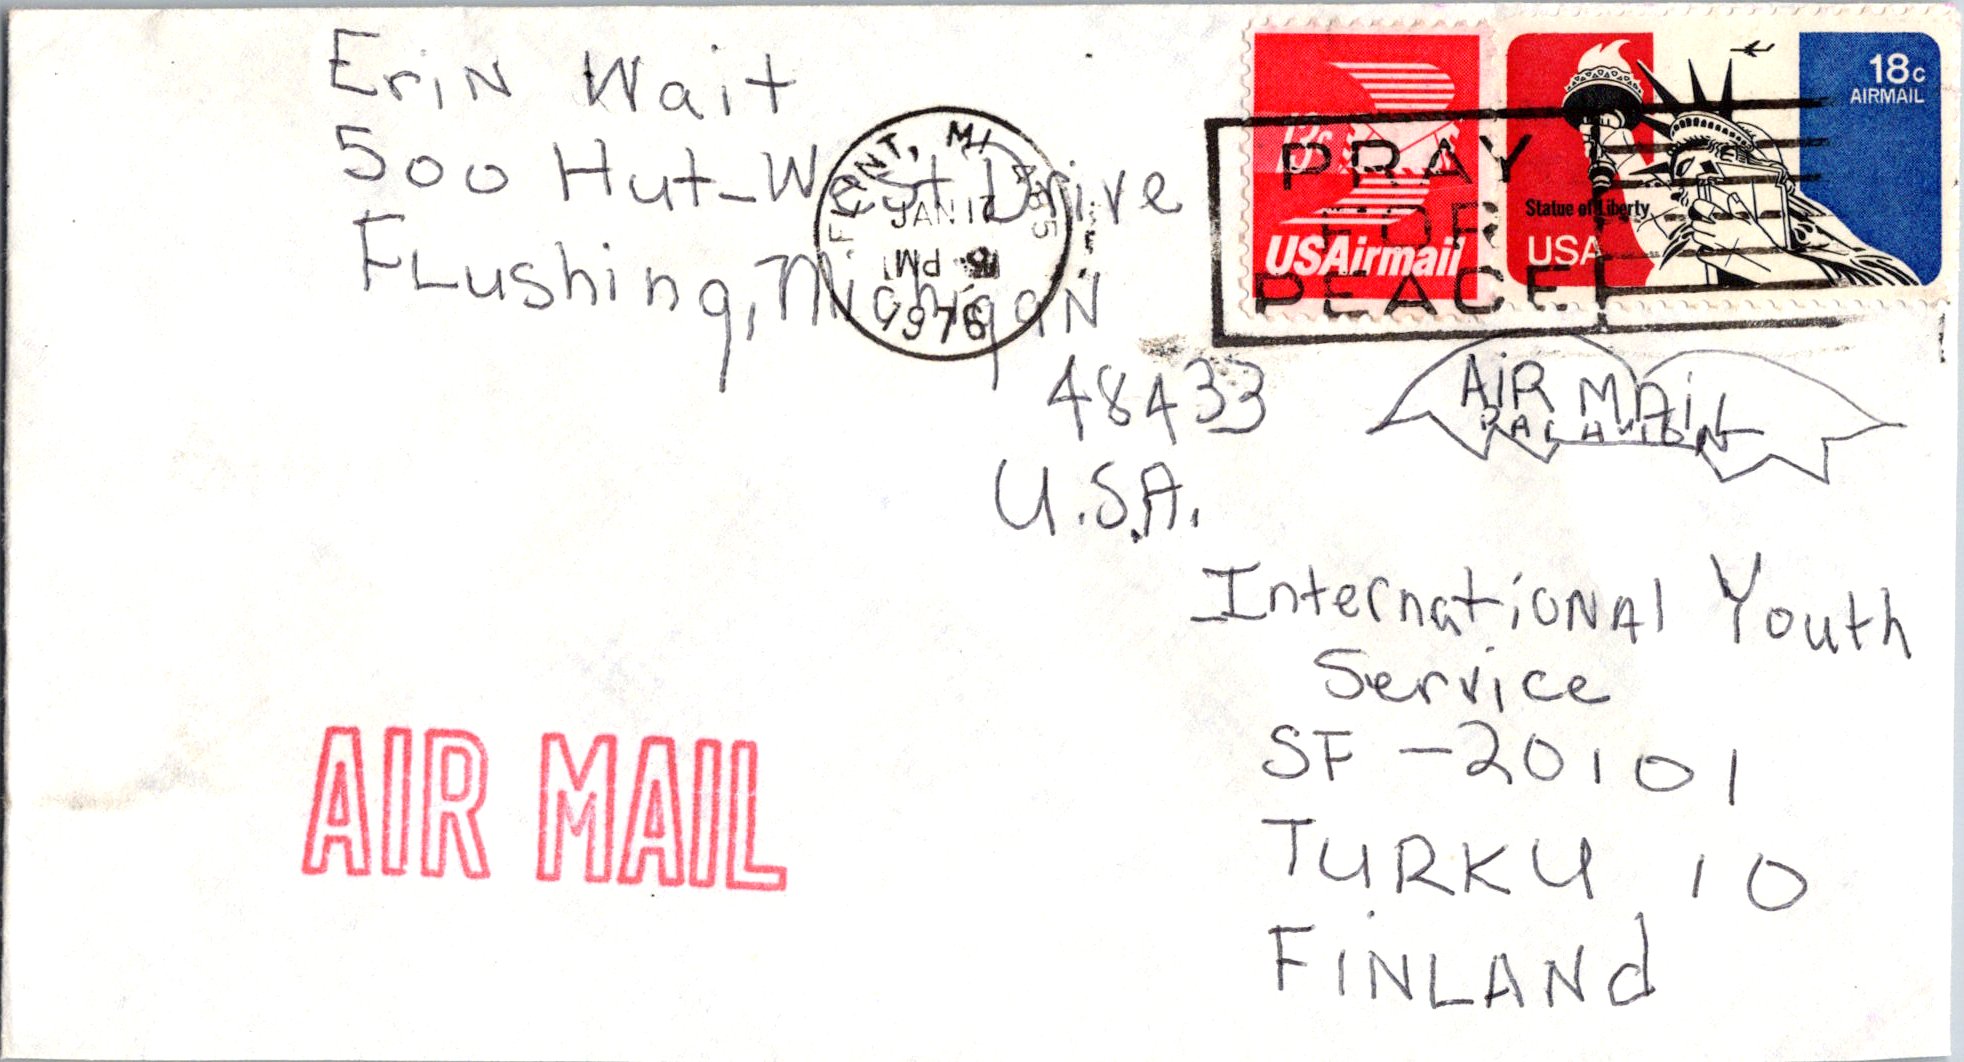 Erin Wait
500 Hut-West Drive
Flushing, Michigan
48433
U.S.A.
FLINT, MI 485
JAN 12
PM
1976
PRAY
FOR
PEACE
13c
USAirmail
18c
AIRMAIL
Statue of Liberty
USA
AIR MAIL
PAR AVION
International Youth
Service
SF-20101
TURKU 10
FINLANd
AIR MAIL